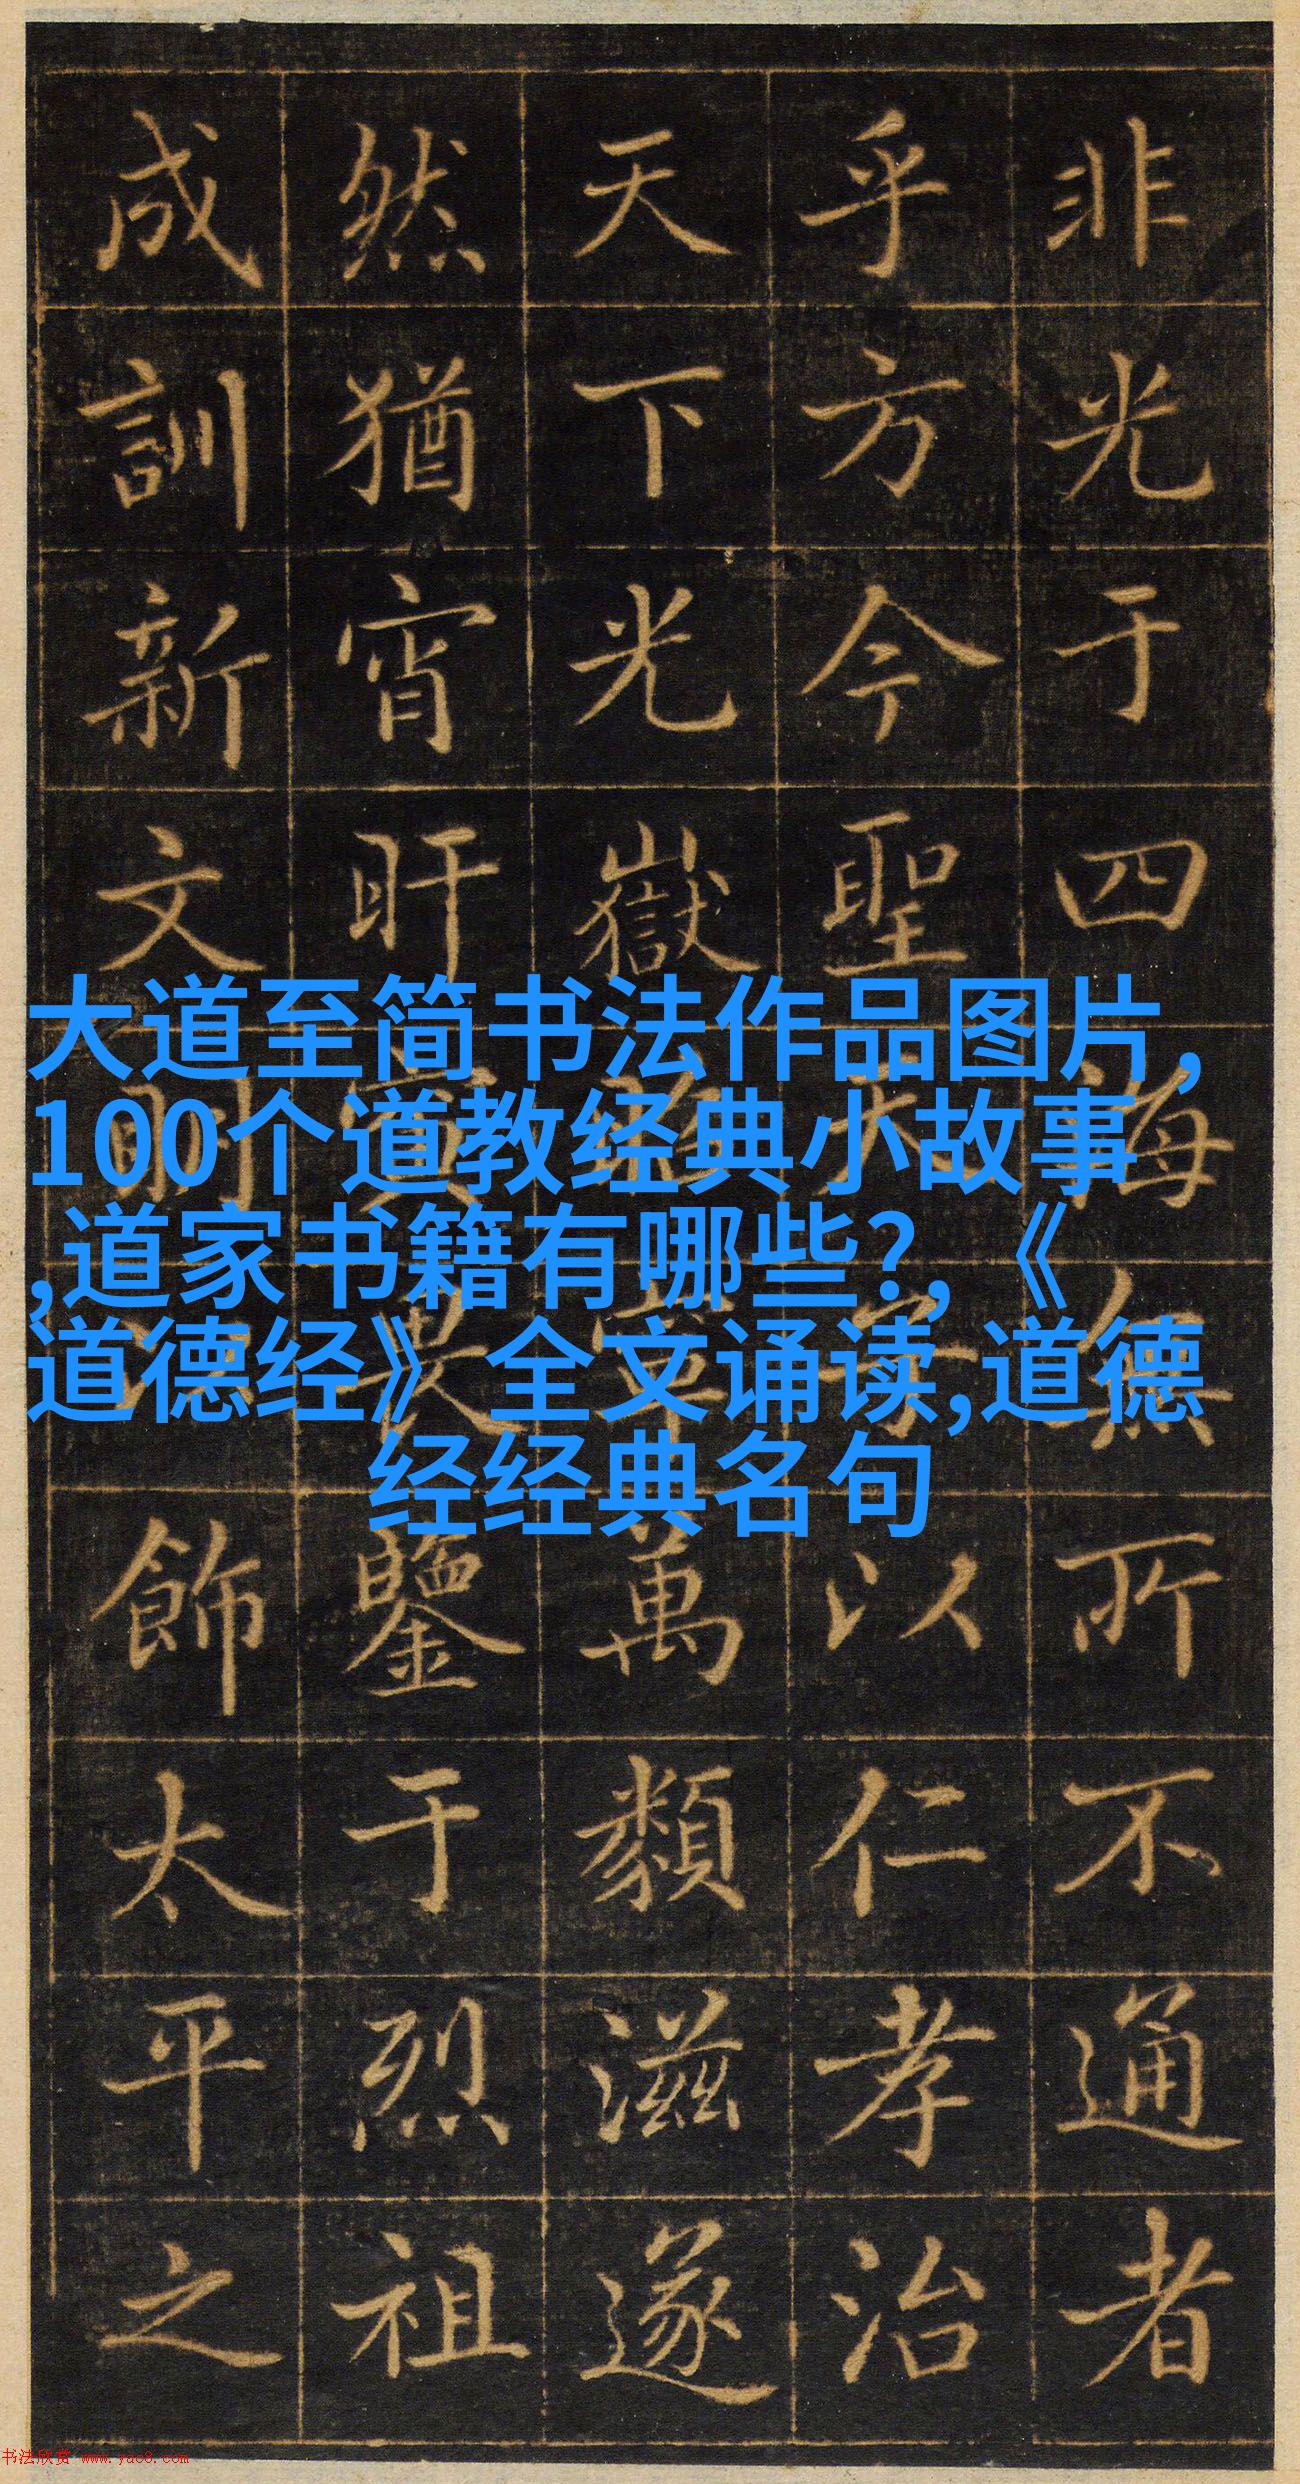 非光于四海無所不通者
乎方今聖以仁孝治
天下光嶽萬類滋遂
然猶宵旰寅畏鑒于烈祖
成訓新文明飾太平之
大道至简书法作品图片,
100个道教经典小故事
,道家书籍有哪些?,《
道德经》全文诵读,道德
经经典名句
书法欣赏 www.yac8.com